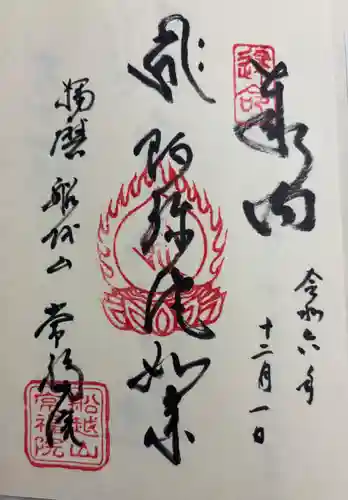 奉拝
令和六年
十二月一日
阿弥陀如来
播磨 船越山 常福院
船越山
常福院